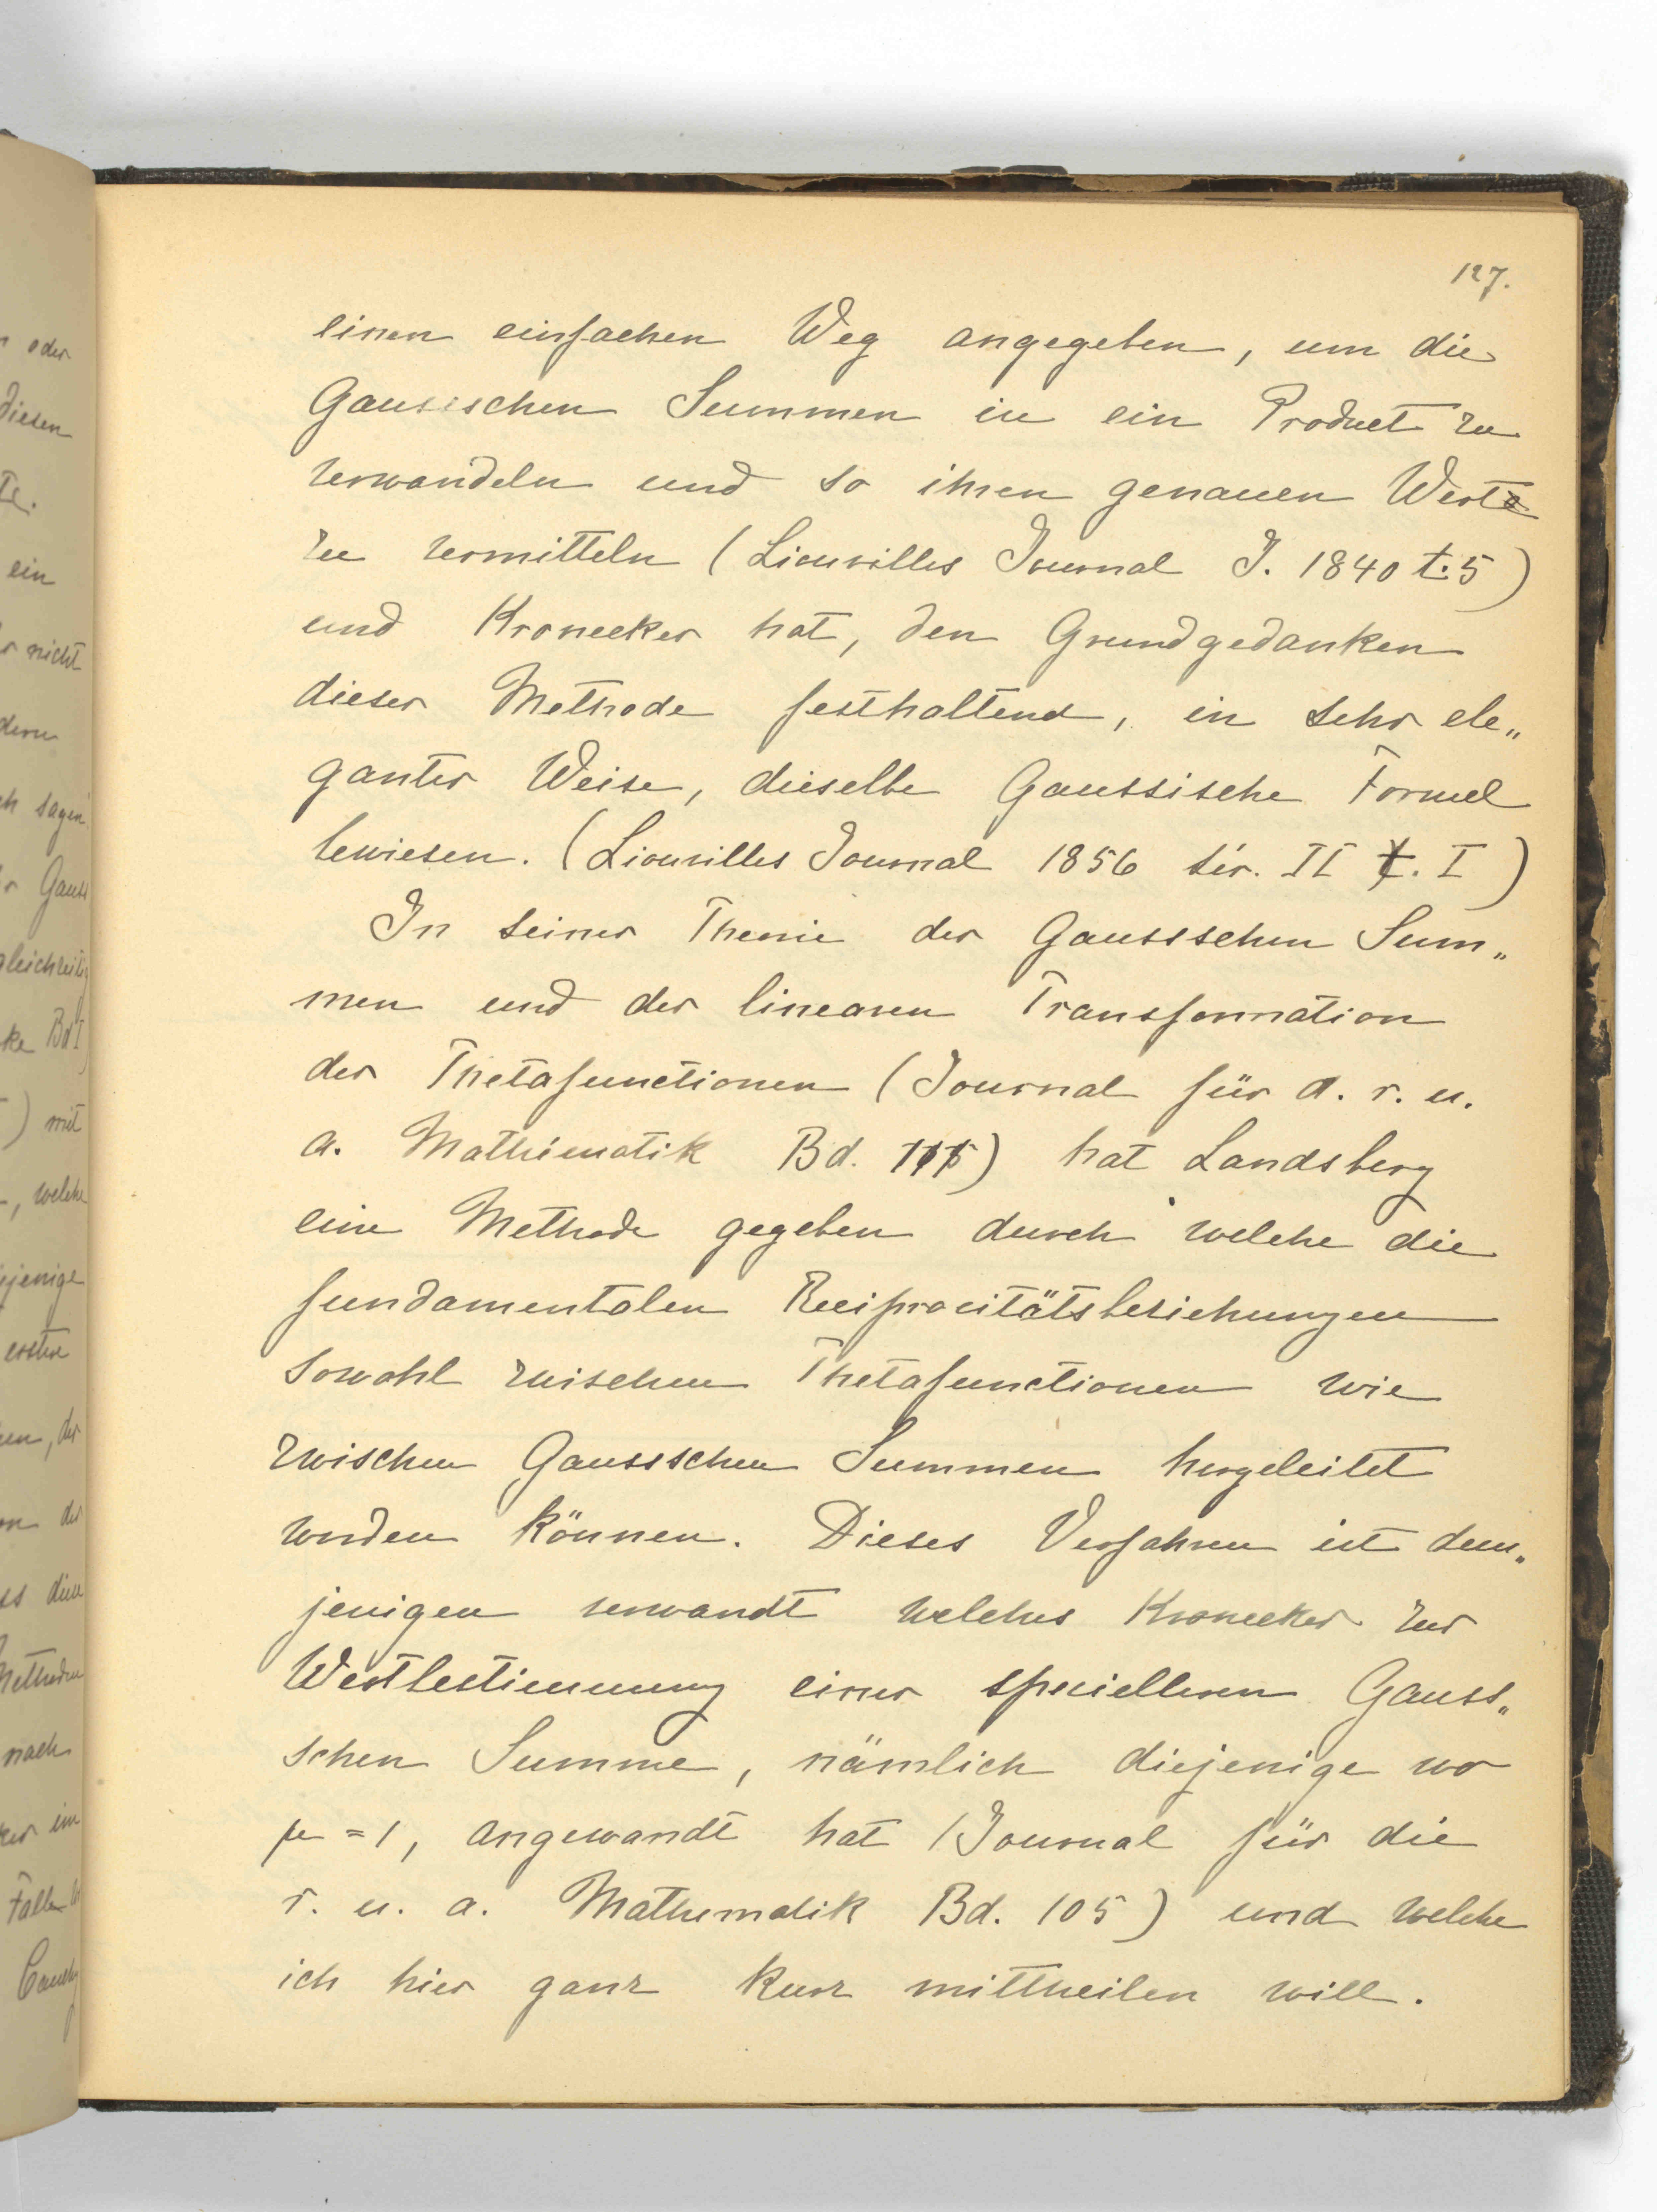 127.
einen einfachen Weg angegeben, um die
Gaussschen Summen in ein Product zu
verwandeln und so ihren genauen Wert
zu vermitteln (Liouvilles Journal J. 1840 t. 5)
und Kronecker hat, den Grundgedanken
dieser Methode festhaltend, in sehr ele„
ganter Weise, dieselbe Gaussische Formel
bewiesen. (Liouvilles Journal 1856 sér. II t. I)
In seiner Theorie der Gaussschen Sum„
men und der linearen Transformation
der Thetafunctionen (Journal für d. r. u.
a. Mathematik Bd. 111) hat Landsberg
eine Methode gegeben durch welche die
fundamentalen Reciprocitätsbeziehungen
sowohl zwischen Thetafunctionen wie
zwischen Gaussschen Summen hergeleitet
werden können. Dieses Verfahren ist dem„
jenigen verwandt welches Kronecker zur
Wertbestimmung einer specielleren Gauss„
schen Summe, nämlich diejenige wo
μ = 1, angewandt hat (Journal für die
r. u. a. Mathematik Bd. 105) und welche
ich hier ganz kurz mittheilen will.
oder
diesen
ein
nicht
sagen
Gauss
gleichzeitig
Bd I
) mit
, welche
erstere
, der
der
diese
Methoden
nach
im
Falle
Cauchy